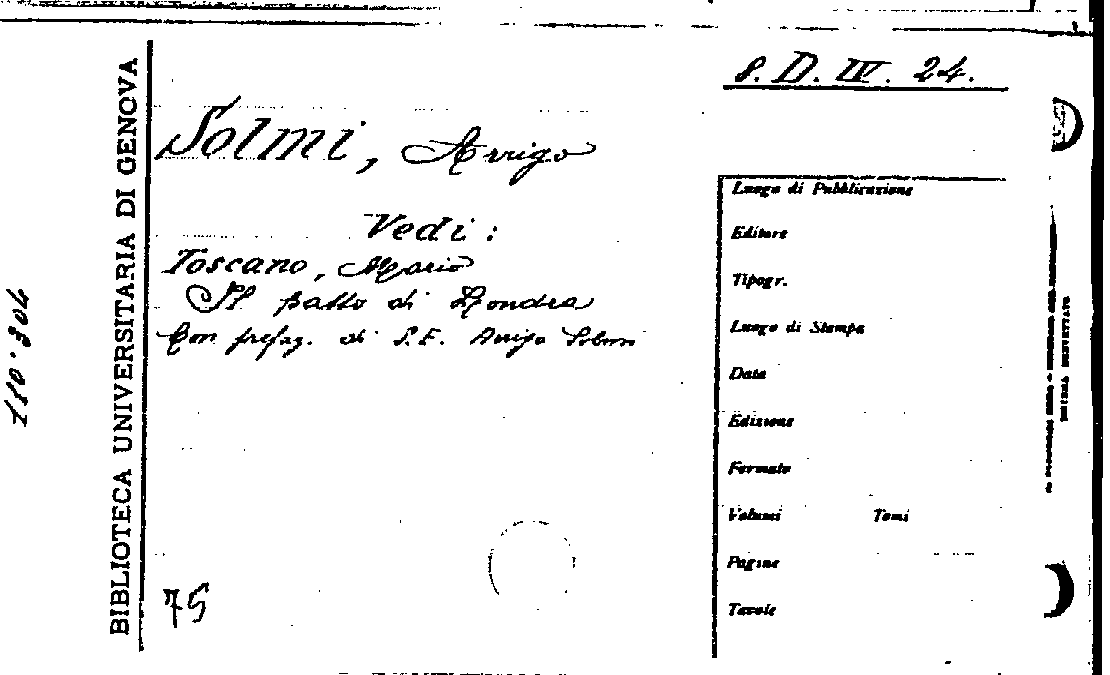 8. D. IV. 24.
Solmi, Arrigo
Vedi:
Toscano, Mario
Il patto di Londra
Con prefaz. di S.E. Arrigo Solmi
75
BIBLIOTECA UNIVERSITARIA DI GENOVA
110.304
Luogo di Pubblicazione
Editore
Tipogr.
Luogo di Stampa
Data
Edizione
Formato
Volumi Tomi
Pagine
Tavole